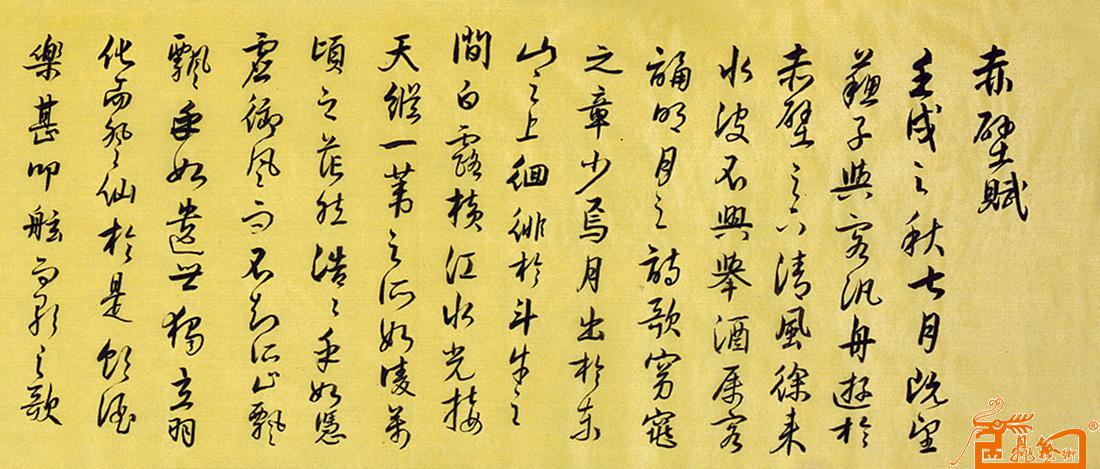 赤壁賦
壬戌之秋七月既望
蘇子與客汎舟遊於
赤壁之下清風徐来
水波不興舉酒属客
誦明月之詩歌窈窕
之章少焉月出於东
山之上徊徘於斗牛之
間白露横江水光接
天縱一葦之所如凌万
頃之茫然浩〻乎如憑
虚御风而不知所止飄
飄乎如遺世獨立羽
化而登仙於是飲酒
樂甚叩舷而歌之歌